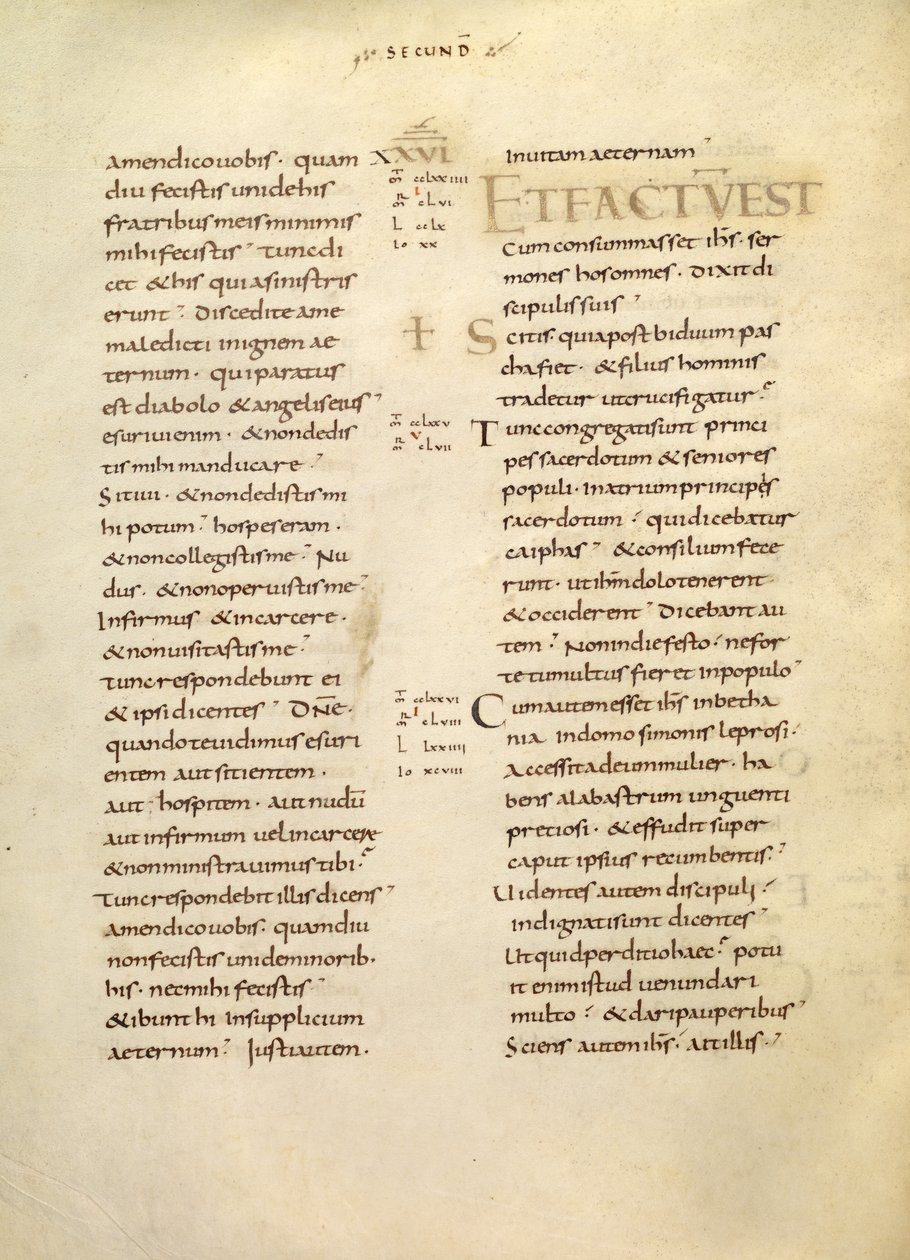 SECUND̄
amendicouobis· quam
diu fecistis unidehis
fratribus meis minimis
mihi fecistis· Tunc di
cet &his qui asinistris
erunt· Discedite ame
maledicti in ignem ae
ternum· qui paratus
est diabolo &angeliseius
esuriui enim· &non dedis
tis mihi manducare·
Sitiui· &non dedistis mi
hi potum· hospes eram·
&non collegistis me· Nu
dus· &non operuistis me·
Infirmus &incarcere·
&non uisitastis me·
Tunc respondebunt ei
&ipsi dicentes· DN̄E·
quando te uidimus esuri
entem aut sitientem·
aut hospitem· aut nudū
aut infirmum uel in carcere
&non ministrauimus tibi·
Tunc respondebit illis dicens
Amendicouobis· quamdiu
non fecistis uni deminorib·
his· nec mihi fecistis·
&ibunt hi in supplicium
aeternum· Iusti autem·
XXVI
m̄ cclxxiiii
m̄r i clvi
L cclx
Io xx
m̄ cclxxv
m̄r v clvii
m̄ cclxxvi
m̄r i clviii
L lxxiiii
Io xcviii
In uitam aeternam
ET FACTV̄ EST
Cum consummasset ih̄s· ser
mones hos omnes· dixit di
scipulis suis
+ Scitis· quia post biduum pas
cha fiet· &filius hominis
tradetur ut crucifigatur·
Tunc congregati sunt princi
pes sacerdotum &seniores
populi· in atrium principis
sacerdotum· qui dicebatur
caiphas· &consilium fece
runt· ut ih̄m dolo tenerent
&occiderent· Dicebant au
tem· Non in die festo· ne for
te tumultus fieret in populo
Cum autem esset ih̄s in betha
nia in domo simonis leprosi·
Accessit ad eum mulier· ha
bens alabastrum unguenti
pretiosi· &effudit super
caput ipsius recumbentis·
Uidentes autem discipuli·
indignati sunt dicentes
Ut quid perditio haec· potu
it enim istud uenundari
multo· &dari pauperibus
Sciens autem ih̄s· ait illis·